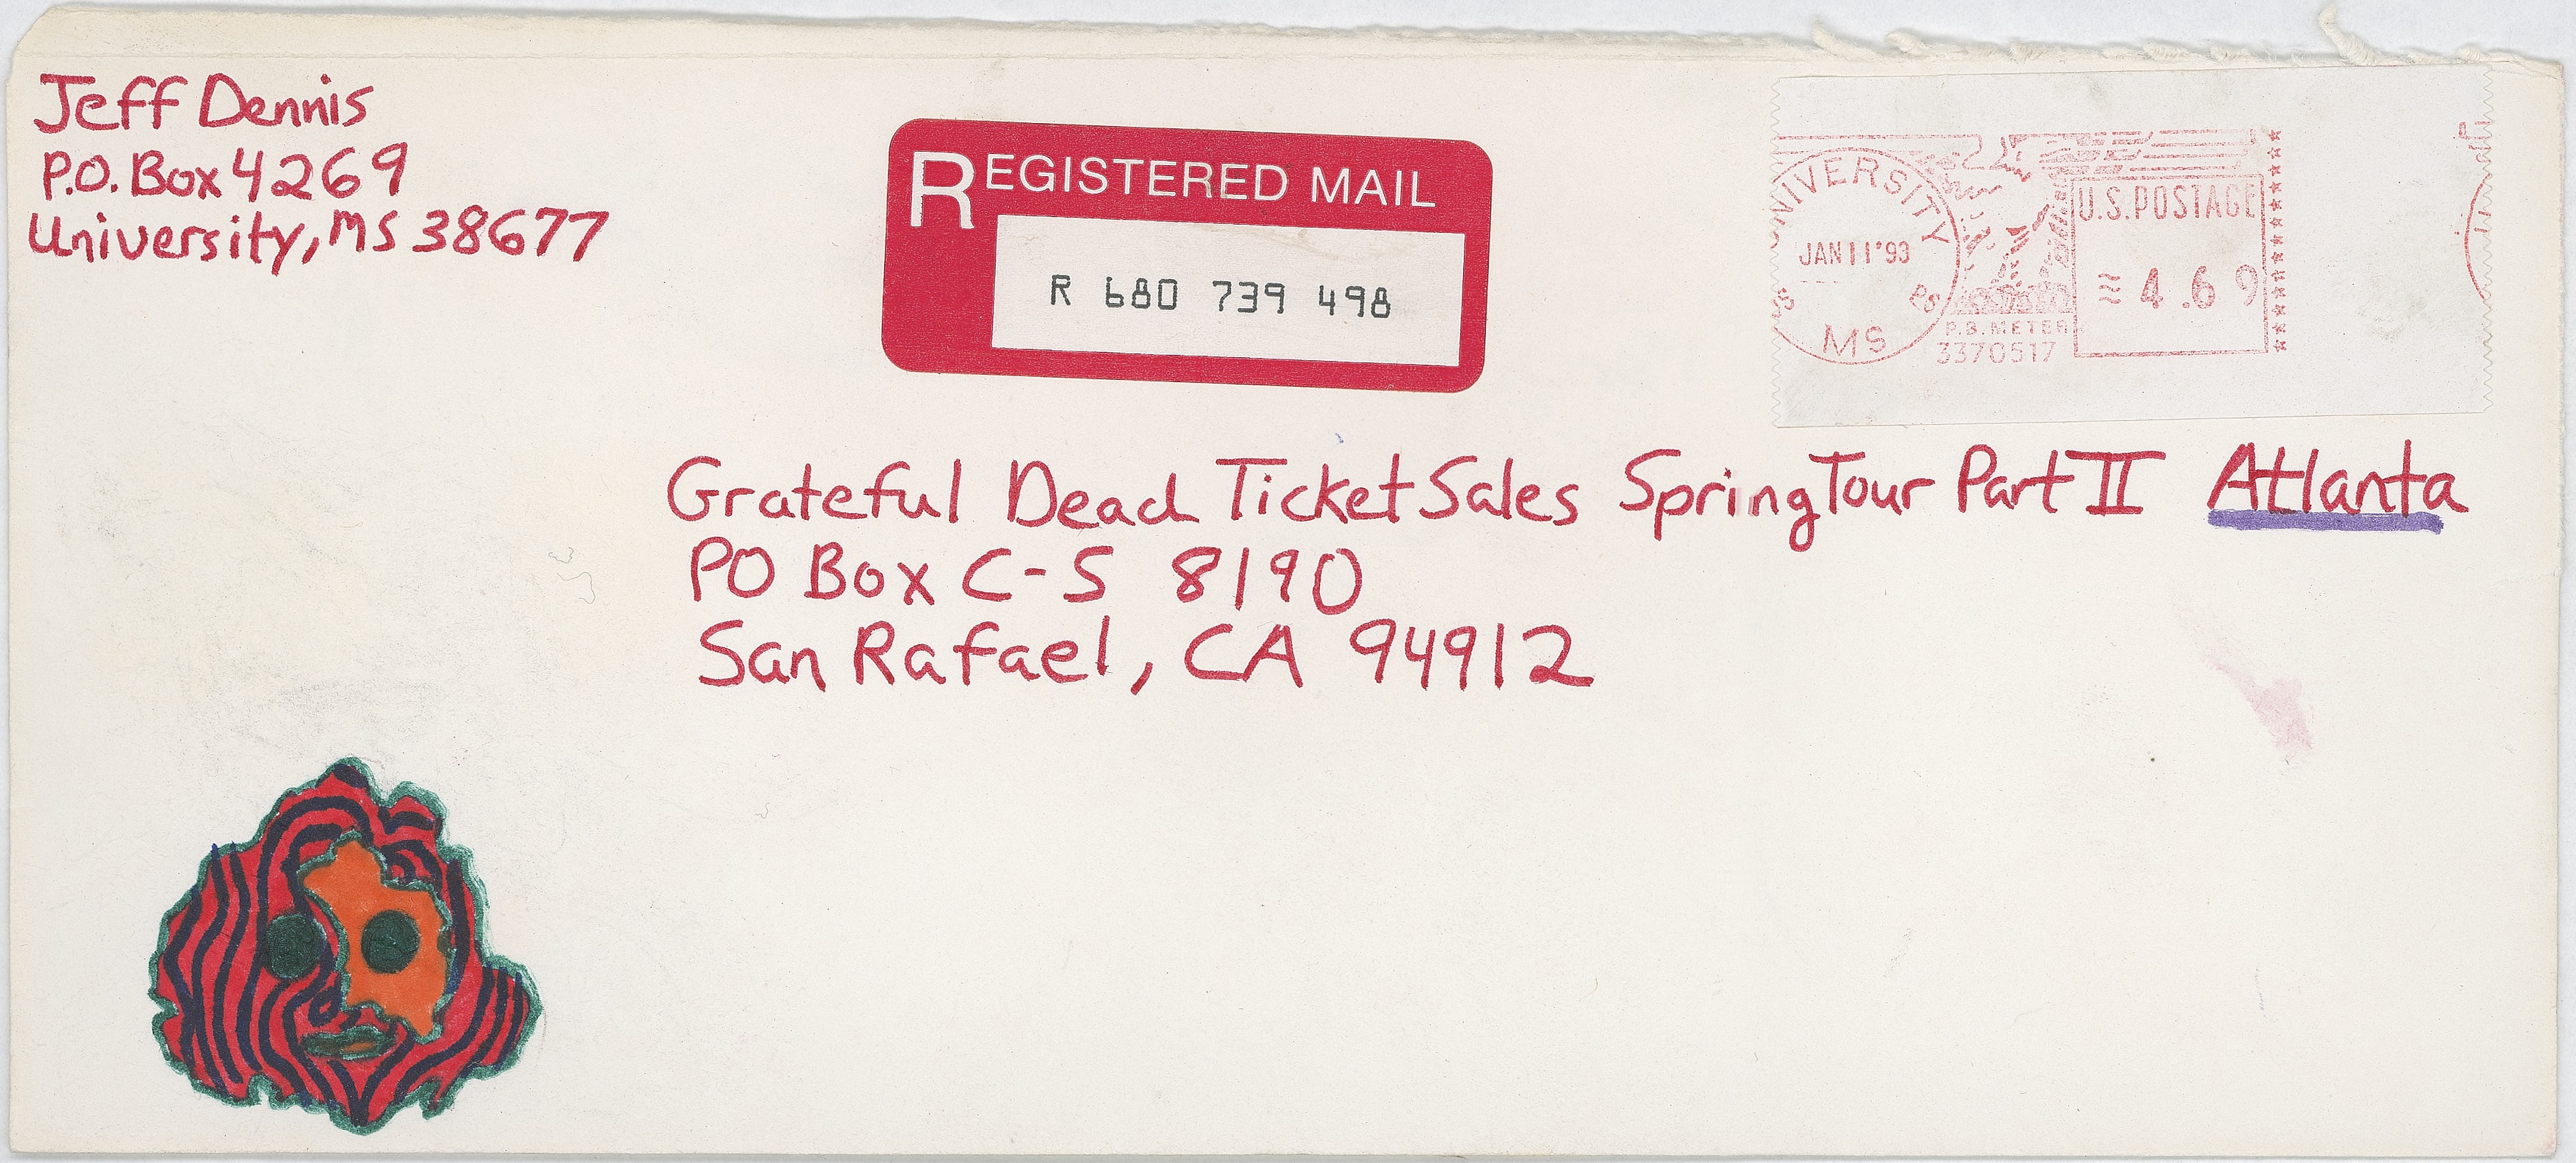 Jeff Dennis
P.O. Box 4269
University, MS 38677
REGISTERED MAIL
R 680 739 498
UNIVERSITY
JAN 11 '93
MS
P.B. METER
3370517
U.S. POSTAGE
4.69
Grateful Dead Ticket Sales Spring Tour Part II Atlanta
PO Box C-S 8190
San Rafael, CA 94912